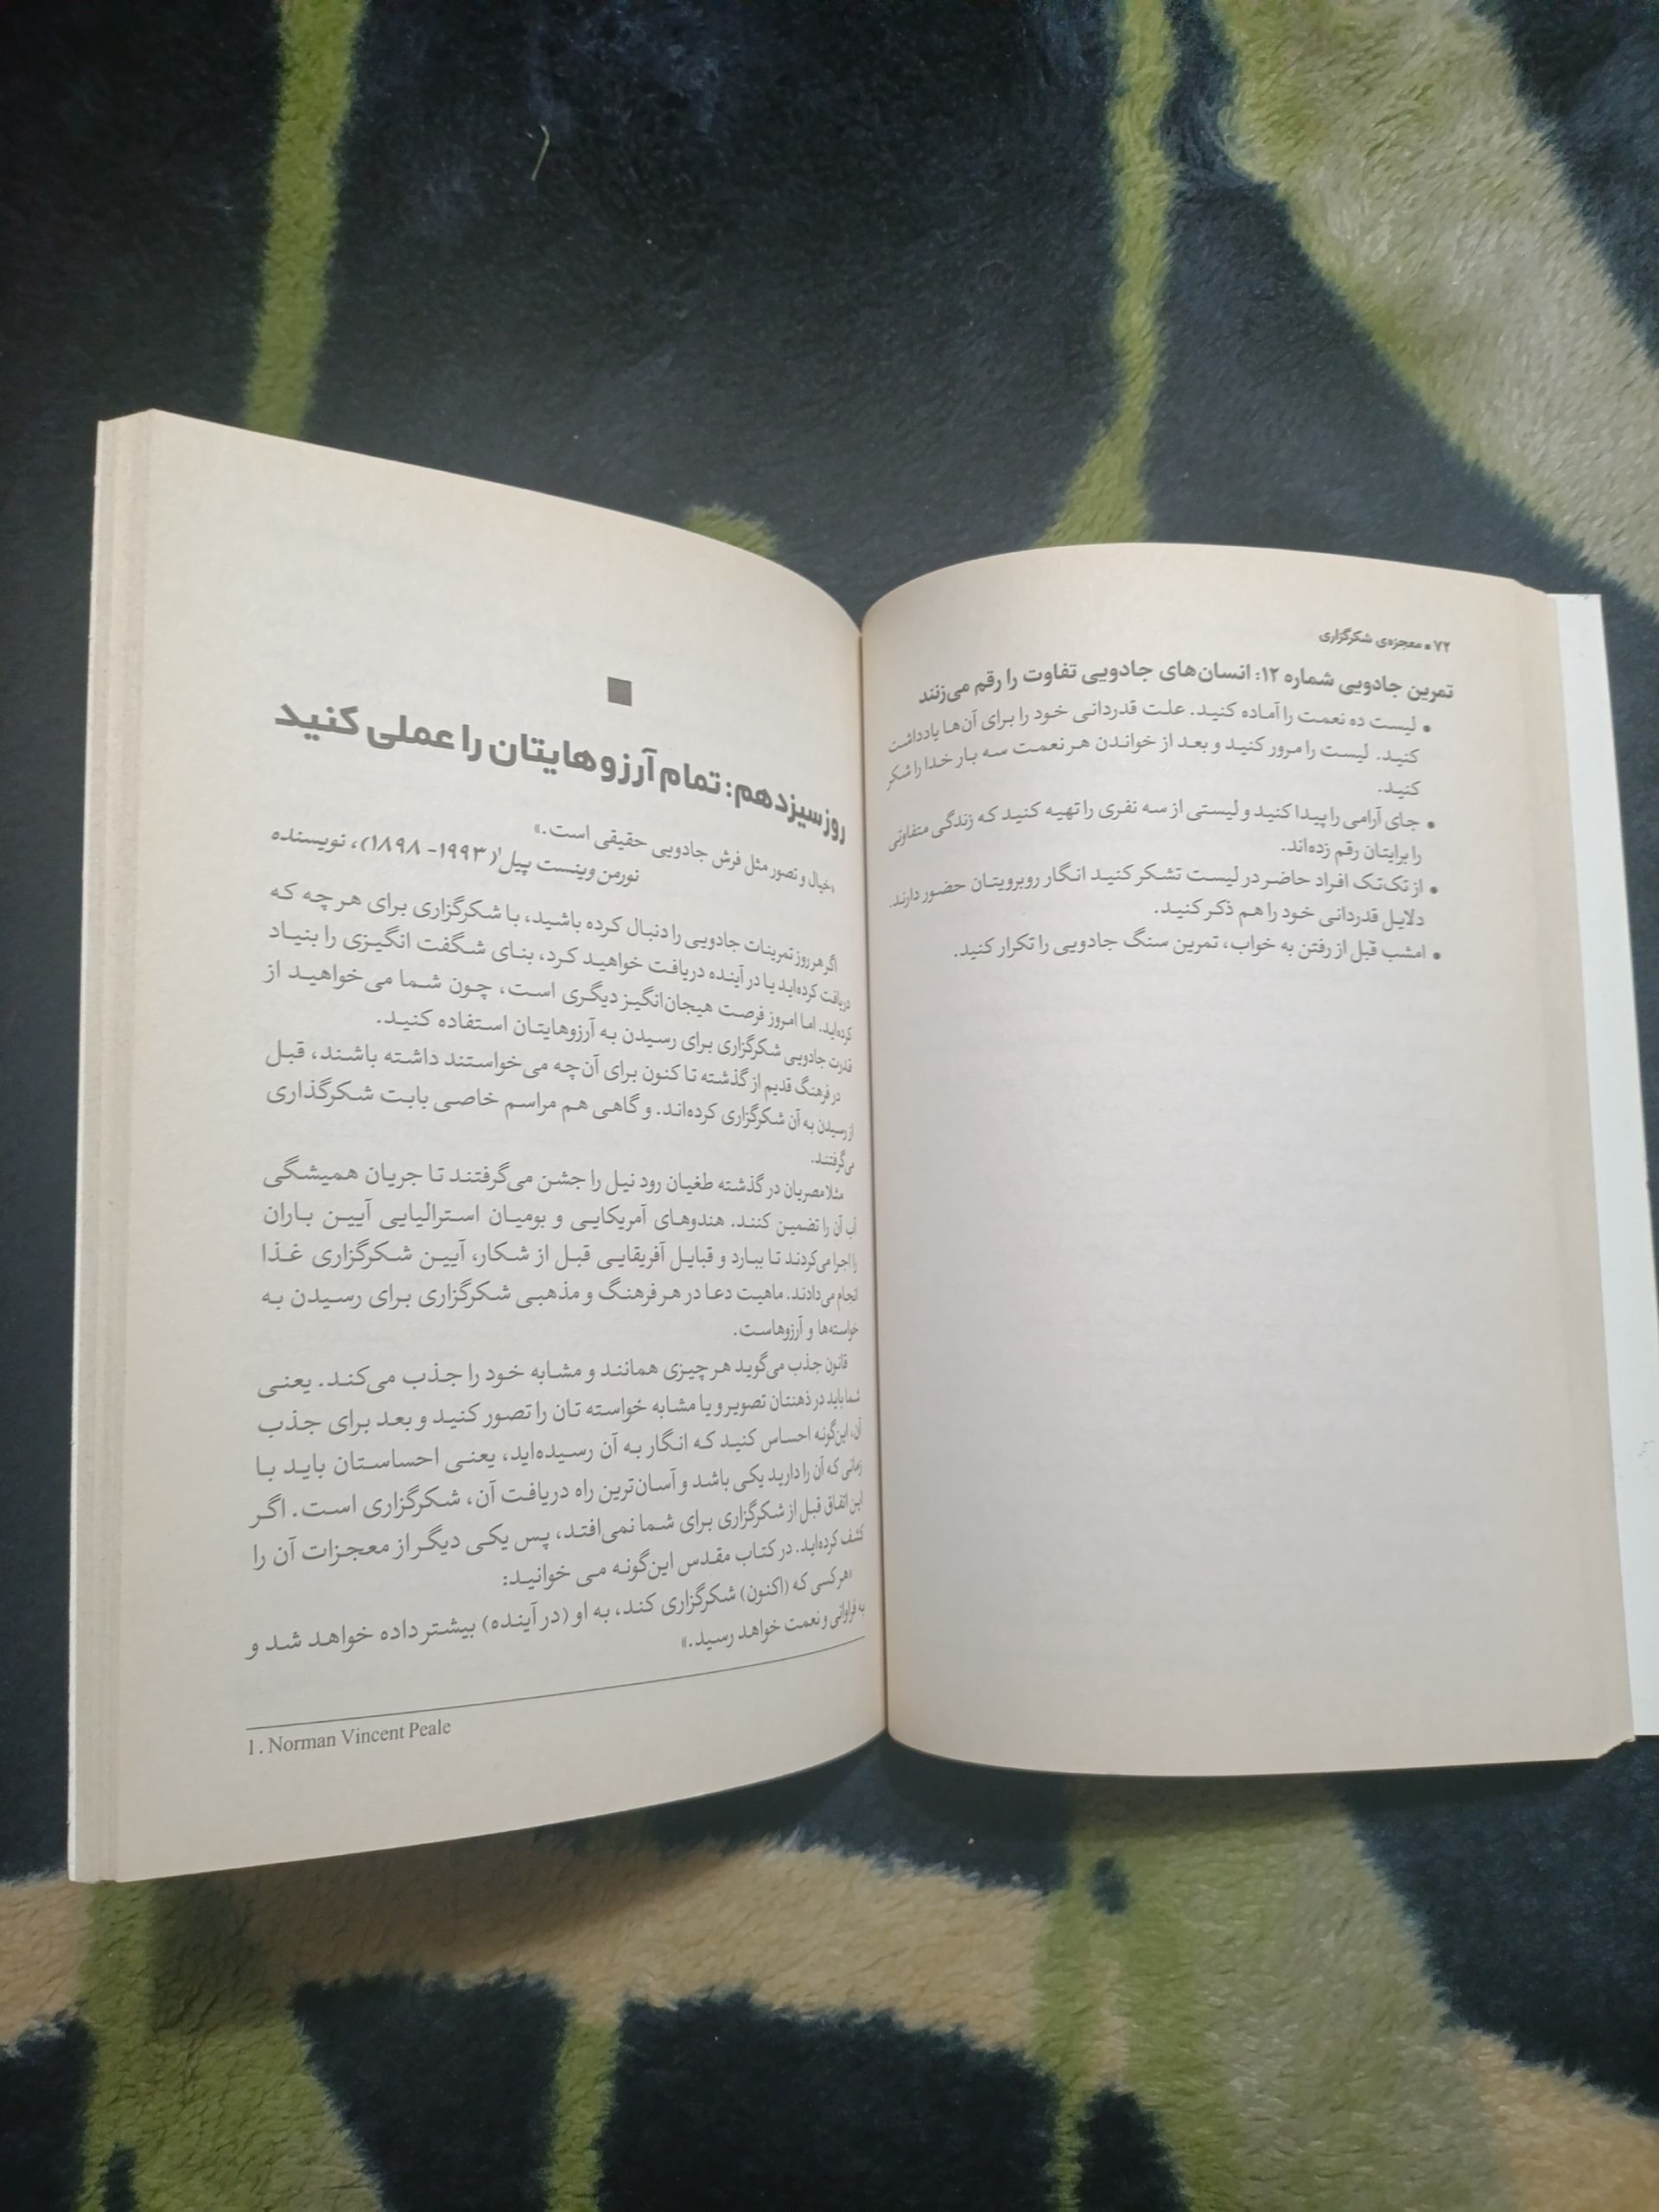 ۷۲ ■ معجزه‌ی شکرگزاری
تمرین جادویی شماره ۱۲: انسان‌های جادویی تفاوت را رقم می‌زنند
• لیست ده نعمت را آماده کنید. علت قدردانی خود را برای آن‌ها یادداشت
کنید. لیست را مرور کنید و بعد از خواندن هر نعمت سه بار خدا را شکر
کنید.
• جای آرامی را پیدا کنید و لیستی از سه نفری را تهیه کنید که زندگی متفاوتی
را برایتان رقم زده‌اند.
• از تک‌تک افراد حاضر در لیست تشکر کنید انگار روبرویتان حضور دارند.
دلایل قدردانی خود را هم ذکر کنید.
• امشب قبل از رفتن به خواب، تمرین سنگ جادویی را تکرار کنید.
روز سیزدهم: تمام آرزوهایتان را عملی کنید
«خیال و تصور مثل فرش جادویی حقیقی است.»
نورمن وینست پیل۱ (۱۹۹۳- ۱۸۹۸)، نویسنده
اگر هر روز تمرینات جادویی را دنبال کرده باشید، با شکرگزاری برای هر چه که
دریافت کرده‌اید یا در آینده دریافت خواهید کرد، بنای شگفت انگیزی را بنیاد
کرده‌اید. اما امروز فرصت هیجان‌انگیز دیگری است، چون شما می‌خواهید از
قدرت جادویی شکرگزاری برای رسیدن به آرزوهایتان استفاده کنید.
در فرهنگ قدیم از گذشته تا کنون برای آن‌چه می‌خواستند داشته باشند، قبل
از رسیدن به آن شکرگزاری کرده‌اند. و گاهی هم مراسم خاصی بابت شکرگذاری
می‌گرفتند.
مثلا مصریان در گذشته طغیان رود نیل را جشن می‌گرفتند تا جریان همیشگی
آب آن را تضمین کنند. هندوهای آمریکایی و بومیان استرالیایی آیین باران
را اجرا می‌کردند تا ببارد و قبایل آفریقایی قبل از شکار، آیین شکرگزاری غذا
انجام می‌دادند. ماهیت دعا در هر فرهنگ و مذهبی شکرگزاری برای رسیدن به
خواسته‌ها و آرزوهاست.
قانون جذب می‌گوید هر چیزی همانند و مشابه خود را جذب می‌کند. یعنی
شما باید در ذهنتان تصویر و یا مشابه خواسته تان را تصور کنید و بعد برای جذب
آن، این‌گونه احساس کنید که انگار به آن رسیده‌اید، یعنی احساستان باید با
زمانی که آن را دارید یکی باشد و آسان‌ترین راه دریافت آن، شکرگزاری است. اگر
این اتفاق قبل از شکرگزاری برای شما نمی‌افتد، پس یکی دیگر از معجزات آن را
کشف کرده‌اید. در کتاب مقدس این‌گونه می خوانید:
«هر کسی که (اکنون) شکرگزاری کند، به او (در آینده) بیشتر داده خواهد شد و
به فراوانی و نعمت خواهد رسید.»
1. Norman Vincent Peale